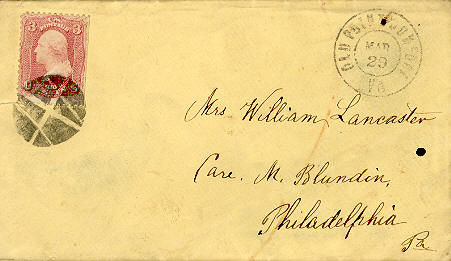 3 3
OLD POINT COMFORT
MAR
29
VA
Mrs William Lancaster
Care. M. Blundin,
Philadelphia
Pa